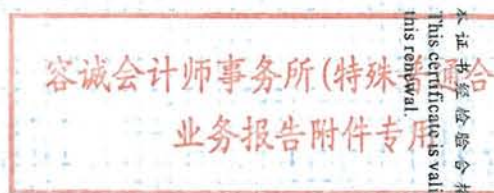 容诚会计师事务所(特殊普通合
业务报告附件专用
本证书经检验合格
This certificate is vali
this renewal.